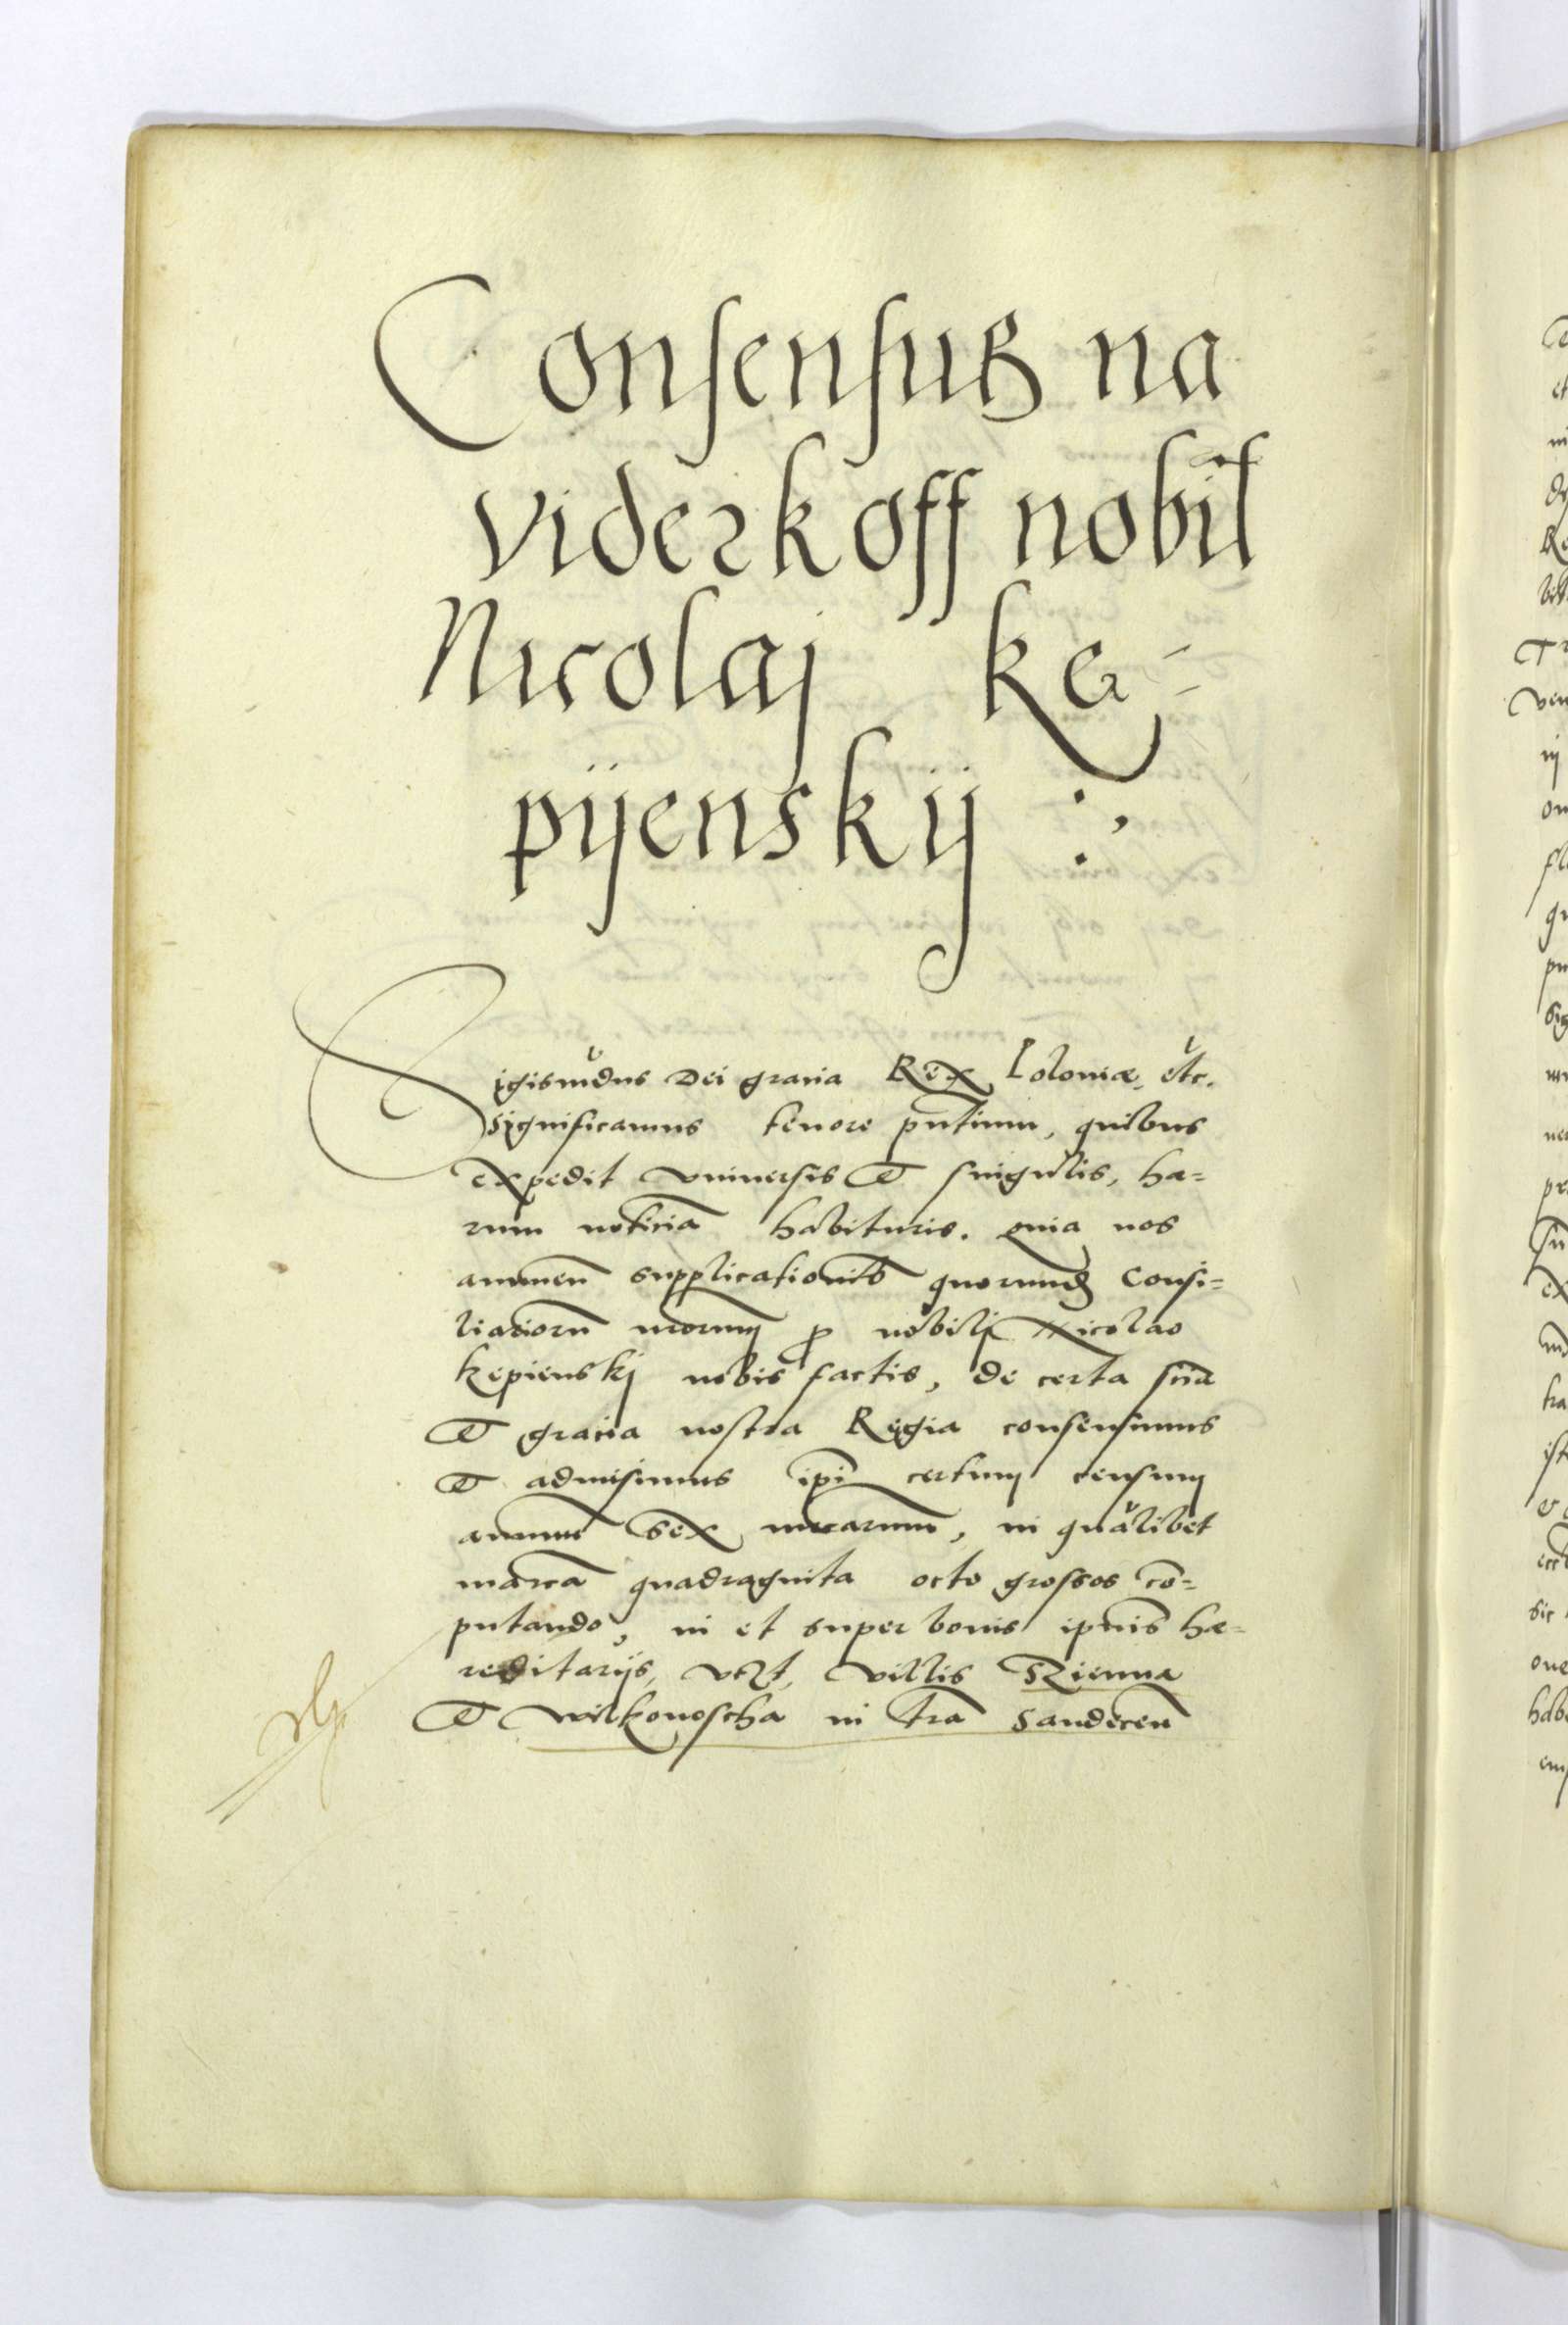 Consensus na
viderkoff nobil
Nicolaj ke=
pijenskij :,
Sigismũdus Dei gracia Rex Poloniæ, etc.
Significamus tenore pntium, quibus
expedit vniuersis et singulis, ha=
rum noticia habituris. quia nos
annuen supplicationib quorumd Consi=
liarior nrorum p nobilj Nicolao
kepienskj nobis factis, de certa scia
et gracia nostra Regia consensimus
et admisimus ipi certum censum
annuu sex mrcarum, in qualibet
marca quadraginta octo grossos co=
putando, in et super bonis ipius hæ=
reditarijs, vczt, villis Rzienna
et wilkonoscha in tra Sandecen